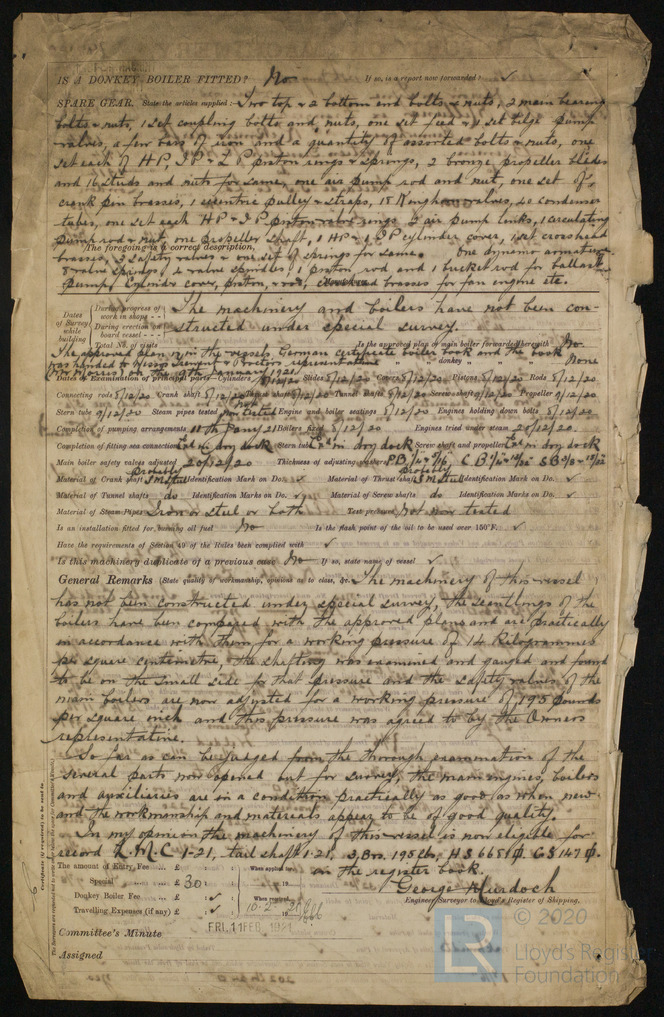 IS A DONKEY BOILER FITTED? No If so, is a report now forwarded? ✓
SPARE GEAR. State the articles supplied:— Two top & 2 bottom end bolts & nuts, 2 main bearing
bolts & nuts, 1 set coupling bolts and nuts, one set feed & 1 set bilge pump
valves, a few bars of iron and a quantity of assorted bolts & nuts, one
set each of H.P, I.P & L.P piston rings & springs, 2 bronze propeller blades
and 16 studs and nuts for same, one air pump rod and nut, one set of
crank pin brasses, 1 eccentric pulley & straps, 18 Kinghorn valves, 40 condenser
tubes, one set each HP & IP piston valve rings 2 air pump links, 1 circulating
pump rod & nut one propeller shaft, 1 HP & 1 cylinder cover, 1 set crosshead
The foregoing is a correct description,
brasses, 2 safety valves & one set of springs for same. One dynamo armature
8 valve springs, valve spindles, 1 piston rod and 1 bucket rod for ballast
pump, cylinder cover, piston, rod, and brasses for fan engine etc.
Dates of Survey while building
During progress of work in shops - -
During erection on board vessel - - -
Total No. of visits
The machinery and boilers have not been con-
structed under special survey.
Is the approved plan of main boiler forwarded herewith No
The approved plan is in the vessels German certificate boiler book and the book
" " " donkey " " " None
was handed to Messrs & representative
on the 9th January 1921
Dates of Examination of principal parts—Cylinders Slides 5/12/20 Covers 5/12/20 Pistons 5/12/20 Rods 5/12/20
Connecting rods 5/12/20 Crank shaft 5/12/20 Thrust shaft 5/12/20 Tunnel shafts 5/12/20 Screw shaft Propeller 9/12/20
Stern tube 9/12/20 Steam pipes tested Not tested Engine and boiler seatings 5/12/20 Engines holding down bolts 5/12/20
Completion of pumping arrangements 11th Jany 21 Boilers fixed 5/12/20 Engines tried under steam 20/12/20.
Completion of fitting sea connections in dry dock Stern tube in dry dock Screw shaft and propeller in dry dock
Main boiler safety valves adjusted 20/12/20 Thickness of adjusting washers
Material of Crank shaft probably I Steel Identification Mark on Do. ✓ Material of Thrust shaft probably I Steel Identification Mark on Do. ✓
Material of Tunnel shafts do Identification Marks on Do. ✓ Material of Screw shafts do Identification Marks on Do. ✓
Material of Steam Pipes Iron or steel or both Test pressure Not now tested
Is an installation fitted for burning oil fuel No Is the flash point of the oil to be used over 150°F. ✓
Have the requirements of Section 49 of the Rules been complied with ✓
Is this machinery duplicate of a previous case No If so, state name of vessel ✓
General Remarks (State quality of workmanship, opinions as to class, &c. The machinery of this vessel
has not been constructed under special survey, the scantlings of the
boilers have been compared with the approved plans and are practically
in accordance with them for a working pressure of 14 Kilogrammes
per square centimetre, the shafting was examined and gauged and found
to be on the small side for that pressure and the safety valves of the
main boilers are now adjusted for a working pressure of 195 pounds
per square inch and this pressure was agreed to by the Owners
representative.
So far as can be judged from the thorough examination of the
several parts now opened out for survey, the main engines, boilers
and auxiliaries are in a condition practically as good as when new
and the workmanship and materials appear to be of good quality.
In my opinion the machinery of this vessel is now eligible for
record L.M.C 1-21, tail shaft 1-21, 195 lbs,
in the register book.
The amount of Entry Fee ... £ : : When applied for,
Special ... £ 30 : : ...19...
Donkey Boiler Fee ... £ : ✓ : When received,
Travelling Expenses (if any) £ : ✓ : 10.2.
George Murdoch
Engineer Surveyor to Lloyd's Register of Shipping.
Committee's Minute FRI. 11 FEB 1921
Assigned
© 2020
Lloyd's Register
Foundation
LR